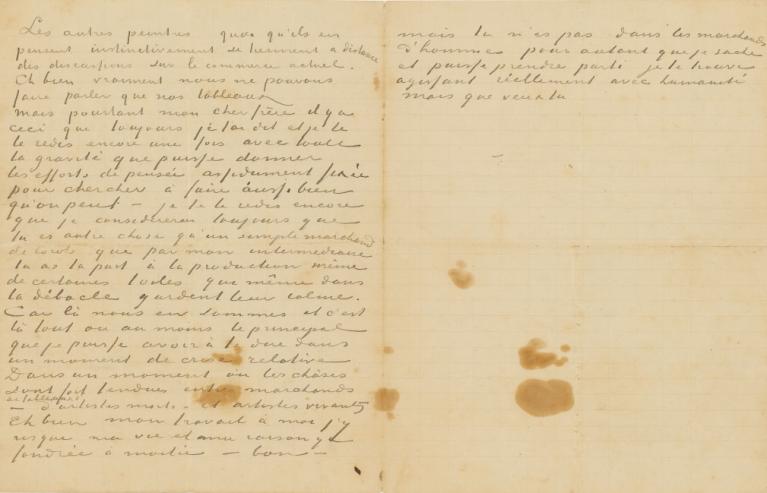 Les autres peintres quoi qu'ils en
pensent instinctivement se tiennent a distance
des discussions sur le commerce actuel.
Eh bien vraiment nous ne pouvons
faire parler que nos tableaux
mais pourtant mon cher frère il y a
ceci que toujours je t'ai dit et je te
le redis encore une fois avec toute
la gravité que puissent donner
les efforts de pensée assidument fixée
pour chercher à faire aussi bien
qu'on peut – je te le redis encore
que je considérerai toujours que
tu es autre chose qu'un simple marchand
de Corots que par mon intermédiaire
tu as ta part à la production même
de certaines toiles que même dans
la débâcle gardent leur calme.
Car là nous en sommes et c'est
là tout ou au moins le principal
que je puisse avoir à te dire dans
un moment de crise relative
Dans un moment où les choses
sont fort tendues entre marchands
de tableaux
– d'artistes morts – et artistes vivants
Eh bien mon travail à moi j'y
risque ma vie et ma raison y a
fondrée à moitié – bon –
mais tu n'es pas dans les marchands
d'hommes pour autant que je sache
et puisse prendre parti je te trouve
agissant réellement avec humanité
mais que veux tu